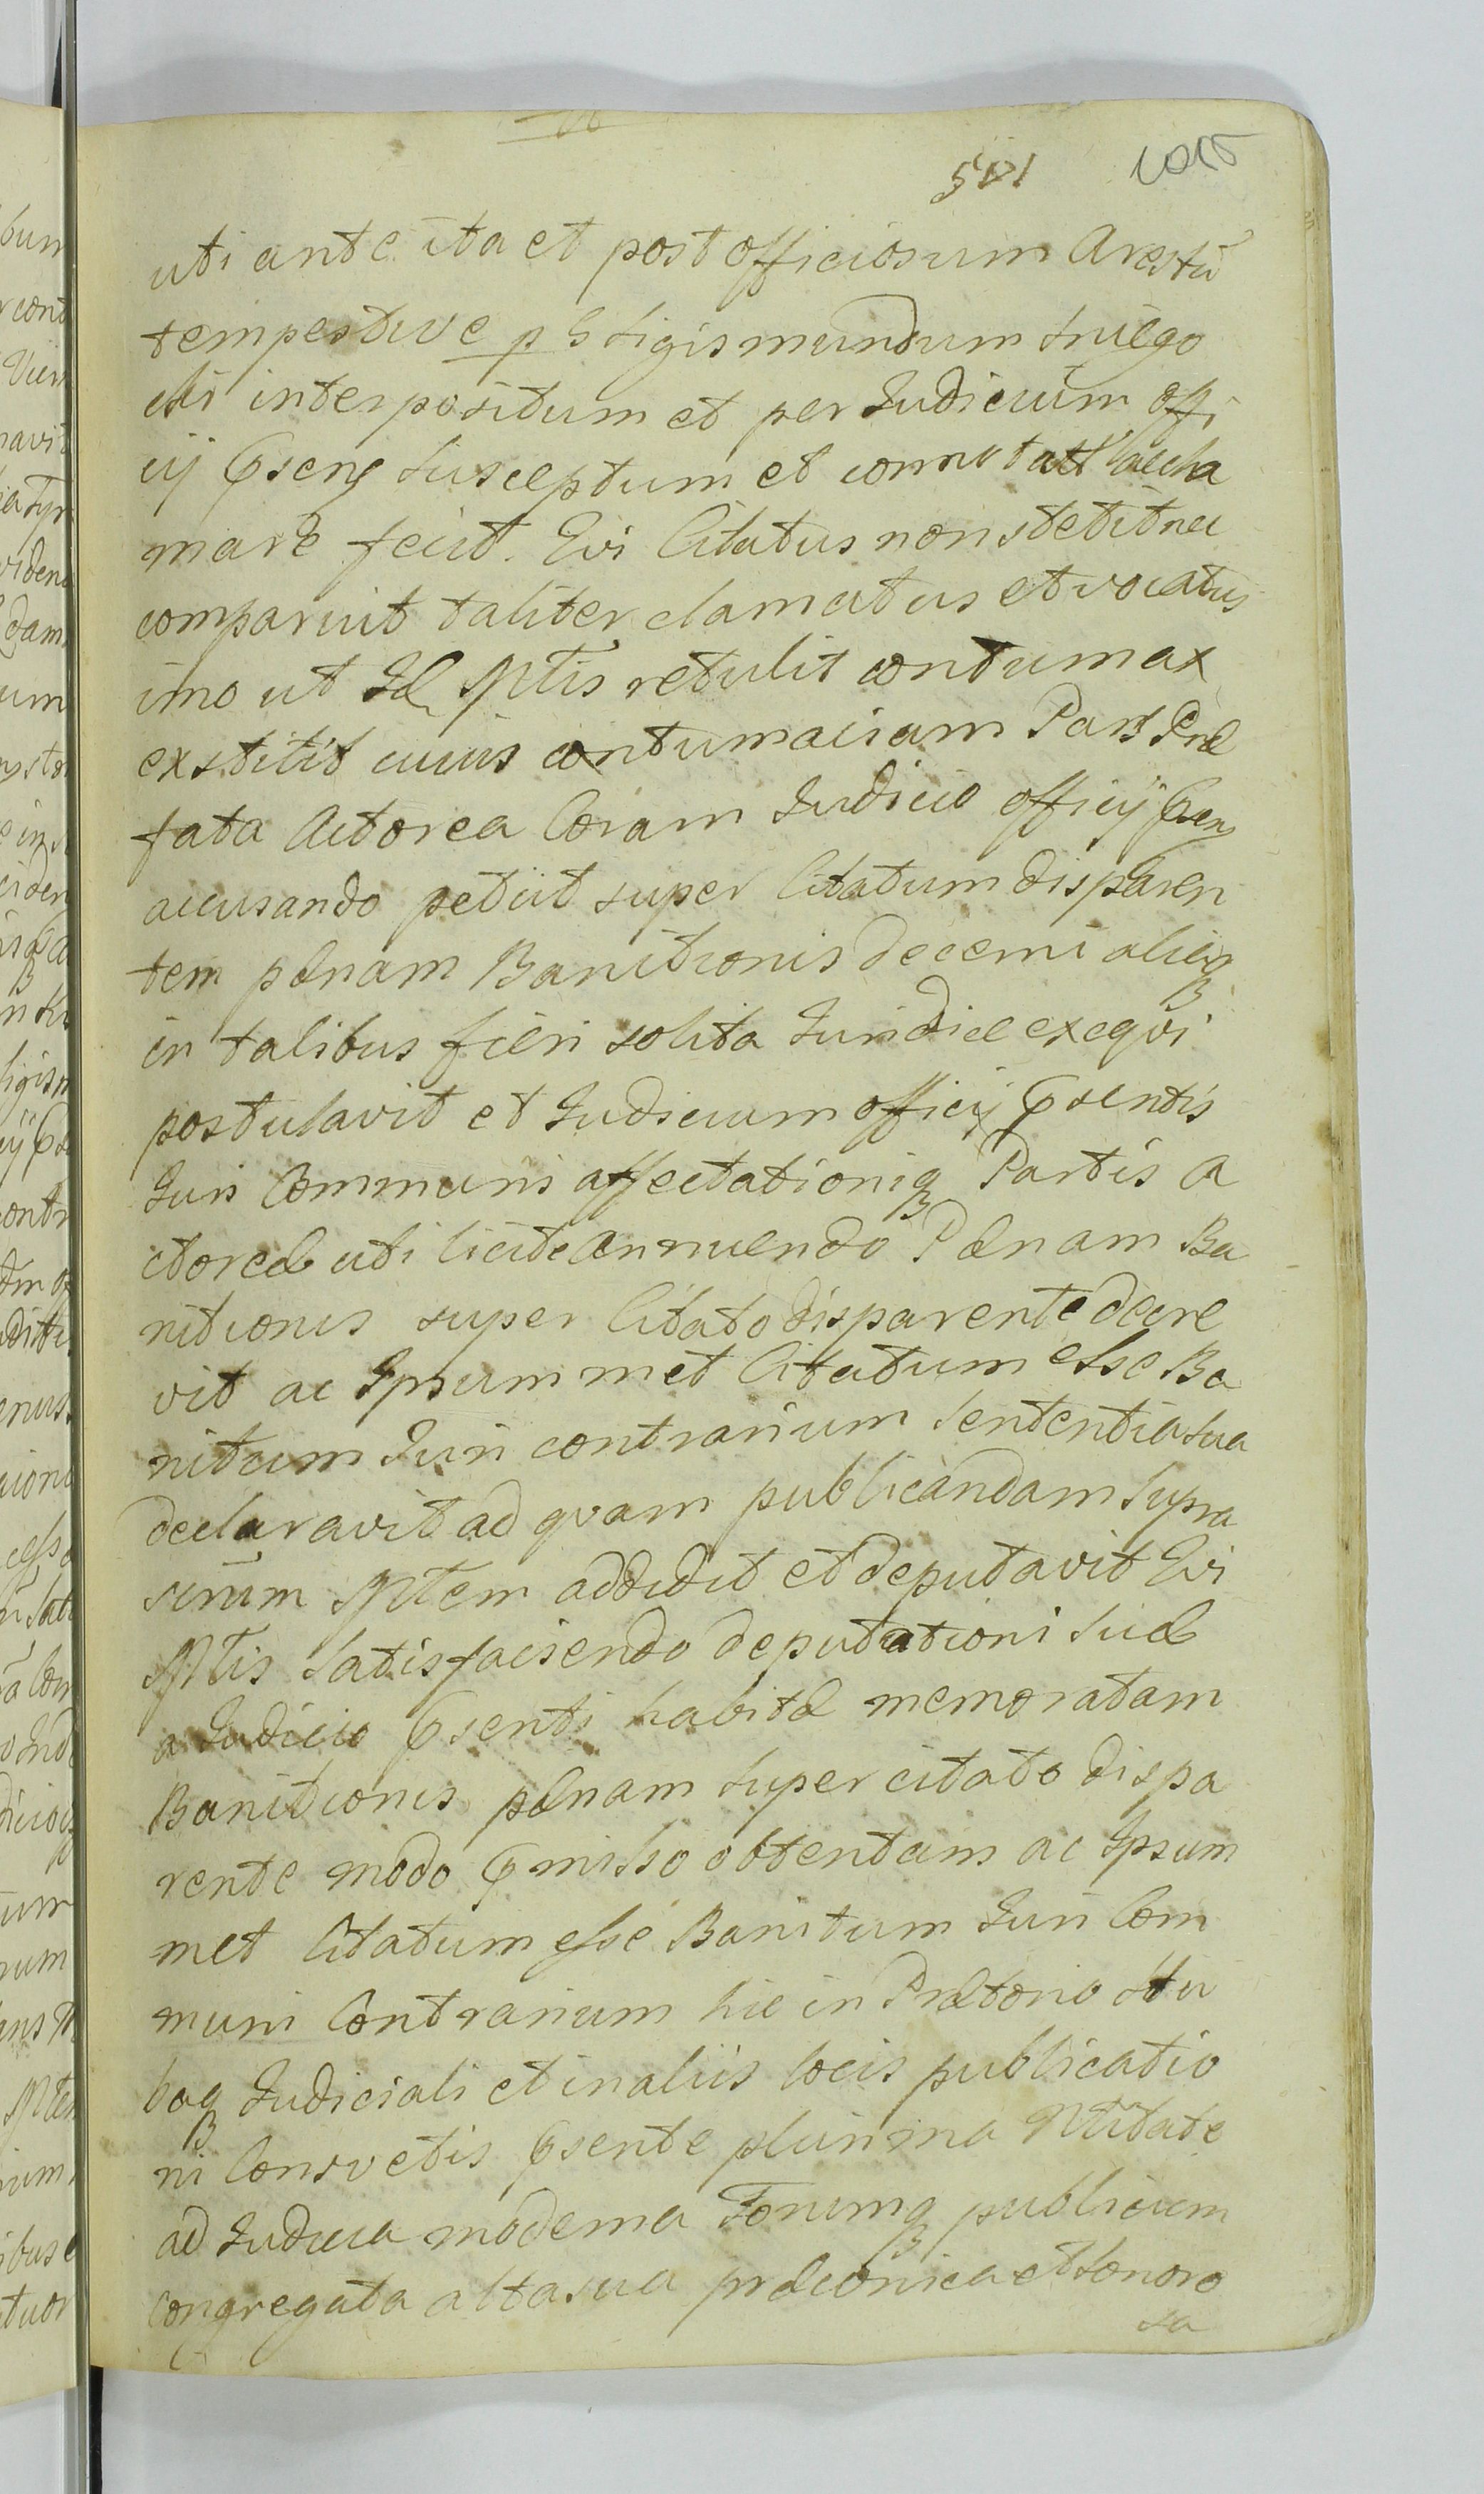 uti ante ita et post officiosum Arestū
tempestive p G Sigismundum Sniego
cki interpositum et per Judicium offi
cij Psens susceptum et connotatū accla
mare fecit. Qvi Citatus non stetit nec
comparuit taliter clamatus et vocatus
imo ut Idē Mtīs retulit contumax
exstitit cuius contumaciam Pars Præ
fata Actorea Coram Judicio officij Psens
accusando petiit super Citatum disparen
tem pænam Banitionis decerni aliaq
in talibus fieri solita Juridice exeqvi
postulavit et Judicium officij Psentis
Juri Communi affectationiq Partis A
ctoreæ uti licitæ annuendo Pænam Ba
nitionis super Citato disparente decre
vit ac Ipsummet Citatum esse Ba
nitum Juri contrarium Sententia sua
declaravit ad qvam publicandam supra
scrium Mtem addidit et deputavit Qvi
Mtīs satisfaciendo deputationi suæ
a Judicio Psenti habitæ memoratam
Banitionis pænam super citato dispa
rente modo Pmisso obtentam ac Ipsum
met Citatum esse Banitum Juri Com
muni Contrarium hic in Prætorio Stu
baq Judiciali et in aliis locis publicatio
ni Consvetis Psente plurima Ntitate
ad Judicia moderna Forumq publicum
congregata alta sua præconica et sonoro
sa